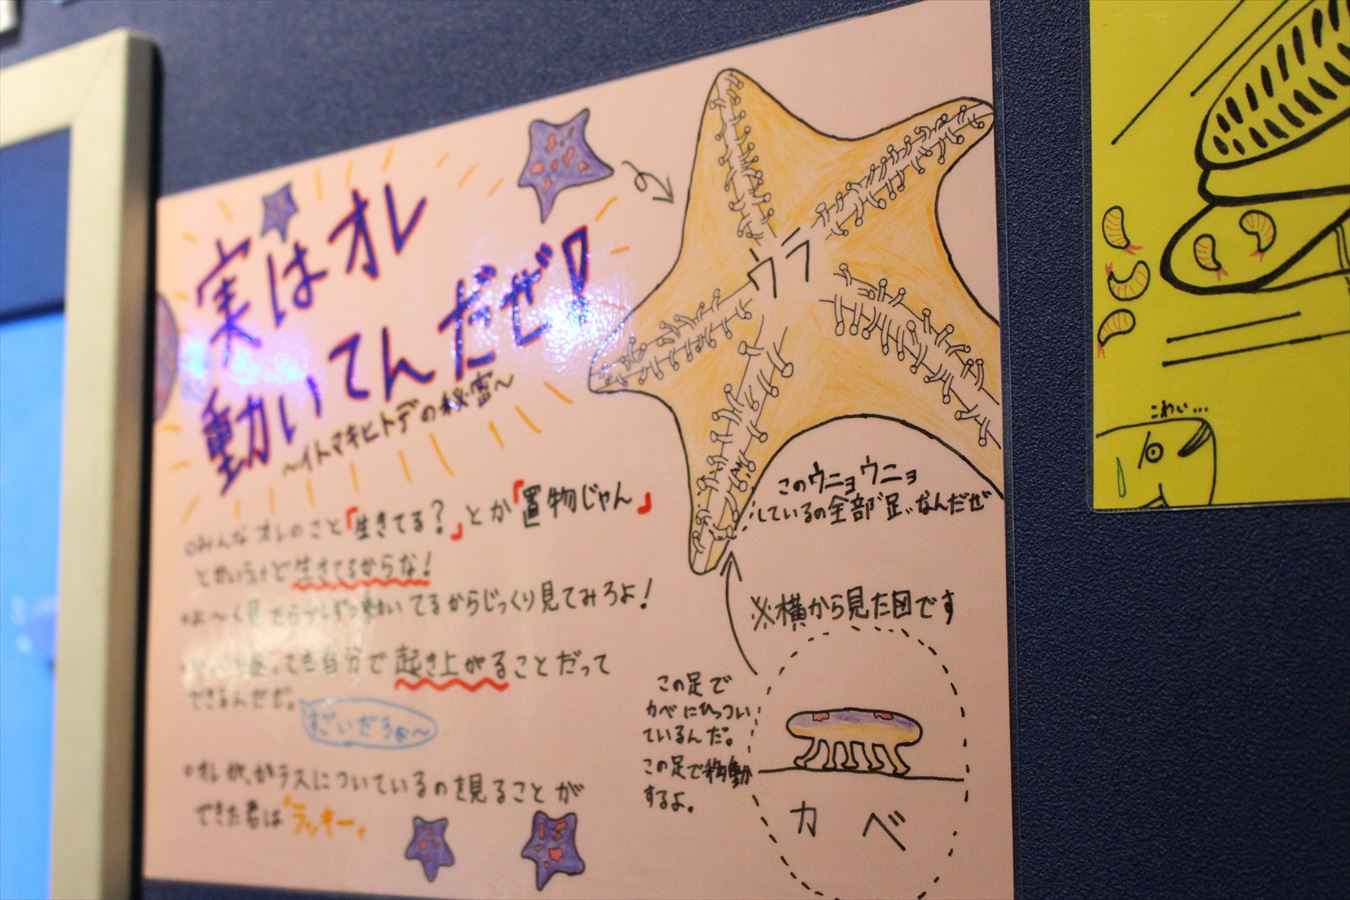 実はオレ
動いてんだぜ!
～イトマキヒトデの秘密～
ウラ
このウニョウニョ
しているの全部"足"なんだぜ
◦みんなオレのこと「生きてる?」とか「置物じゃん」
とかいうけど生きてるからな!
・よ～く見たら少しずつ動いてるからじっくり見てみろよ!
ても自分で起き上がることだって
できるんだぜ。
すごいだろぉ～
・オレが、ガラスについているのを見ることが
できた君は"ラッキー"
※横から見た図です
この足で
カベにひっつい
ているんだ。
この足で移動
するよ。
カベ
こわい...